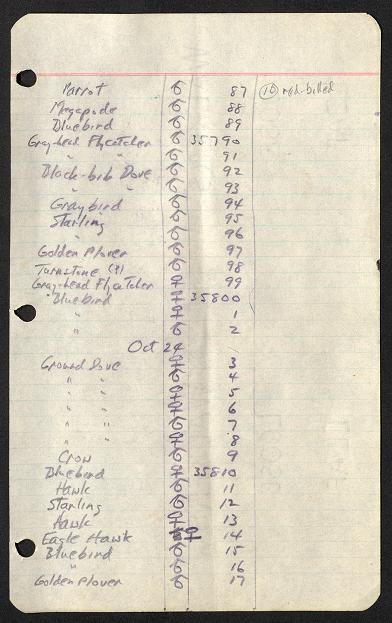 Parrot 87 (10) red-billed
Megapode 88
Bluebird 89
Gray-head Flycatcher 35790
" " 91
Black-bib Dove 92
" " 93
Graybird 94
Starling 95
" 96
Golden Plover 97
Turnstone (?) 98
Gray-head Flycatcher 99
Bluebird 35800
" 1
" 2
Oct 24
Ground Dove 3
" " 4
" " 5
" " 6
" " 7
" " 8
Crow 9
Bluebird 35810
Hawk 11
Starling 12
Hawk 13
Eagle Hawk ♀ 14
Bluebird 15
" 16
Golden Plover 17